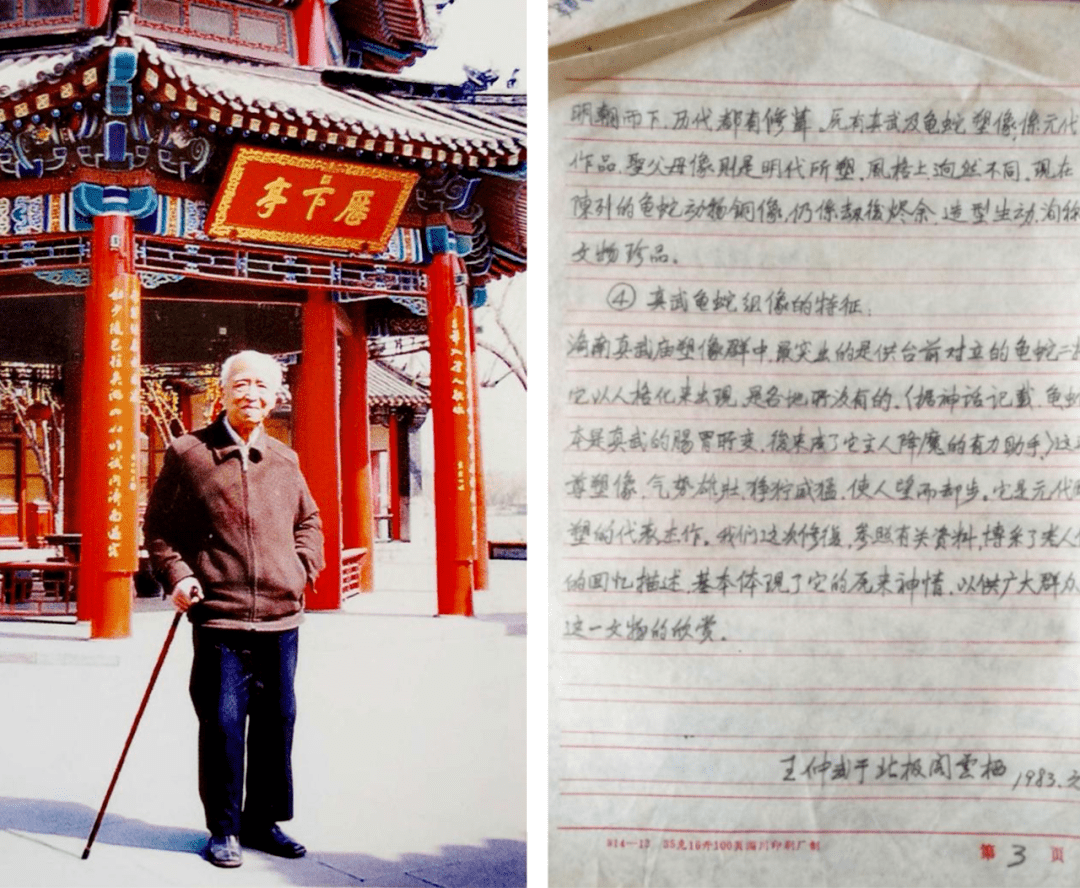 厯下亭
杜少陵
試问濟南過客
明朝而下，历代都有修葺。原有真武及龟蛇塑像，係元代
作品。聖父母像則是明代所塑，風格上迥然不同，现在
陳列的龟蛇动物銅像，仍係劫後烬余，造型生动，洵称
文物珍品。
④真武龟蛇组像的特征：
海南真武庙塑像群中，最突出的是供台前对立的龟蛇二
它以人格化来出现，是各地所没有的。（据神话记載，龟蛇
本是真武的腸胃所变，後来成了它主人降魔的有力助手）这
尊塑像，气势雄壮，狰狞威猛，使人望而却步。它是元代
塑的代表杰作。我们这次修復，参照有关资料，博采了老人
的回忆描述，基本体现了它的原来神情，以供广大群众
这一文物的欣赏。
王仲武于北极阁雲栖 1983.元
914—13 35克16开100页淄川印刷厂制
第 3 页